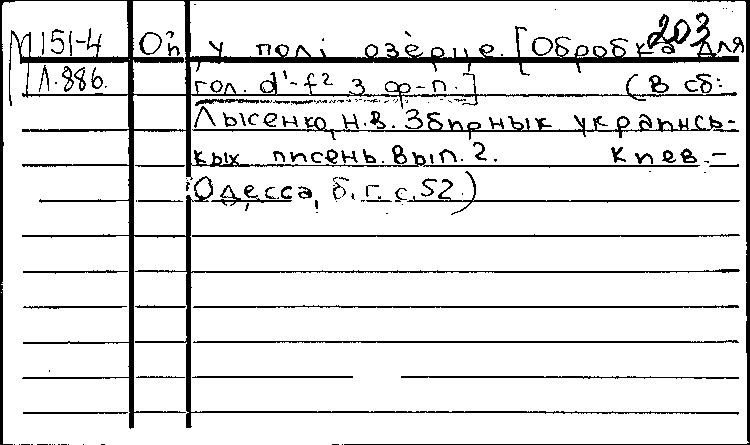 203
М151-4 Ой, у полі озерце. [Обробка для
Л.886. гол. d¹-f² з ф-п.] (В сб:
Лысенко, Н.В. Збирнык украинсь-
кых писень. Вып. 2. Киев.-
Одесса, б.г. с.52)